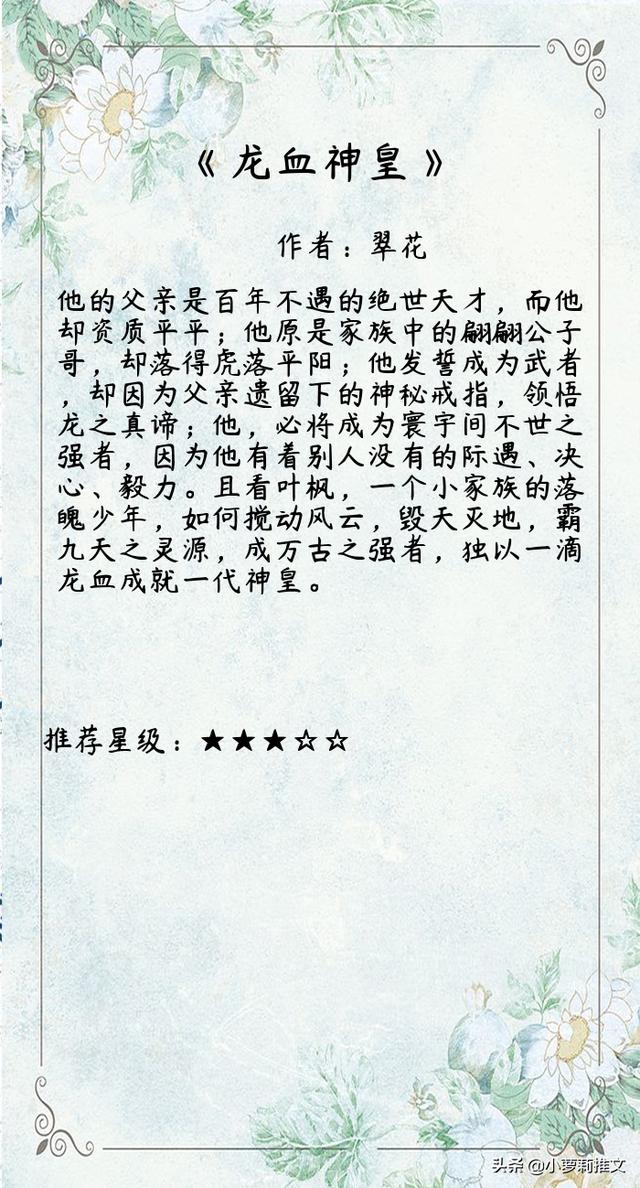 《龙血神皇》
作者：翠花
他的父亲是百年不遇的绝世天才，而他
却资质平平；他原是家族中的翩翩公子
哥，却落得虎落平阳；他发誓成为武者
，却因为父亲遗留下的神秘戒指，领悟
龙之真谛；他，必将成为寰宇间不世之
强者，因为他有着别人没有的际遇、决
心、毅力。且看叶枫，一个小家族的落
魄少年，如何搅动风云，毁天灭地，霸
九天之灵源，成万古之强者，独以一滴
龙血成就一代神皇。
推荐星级：★★★☆☆
头条 @小萝莉推文